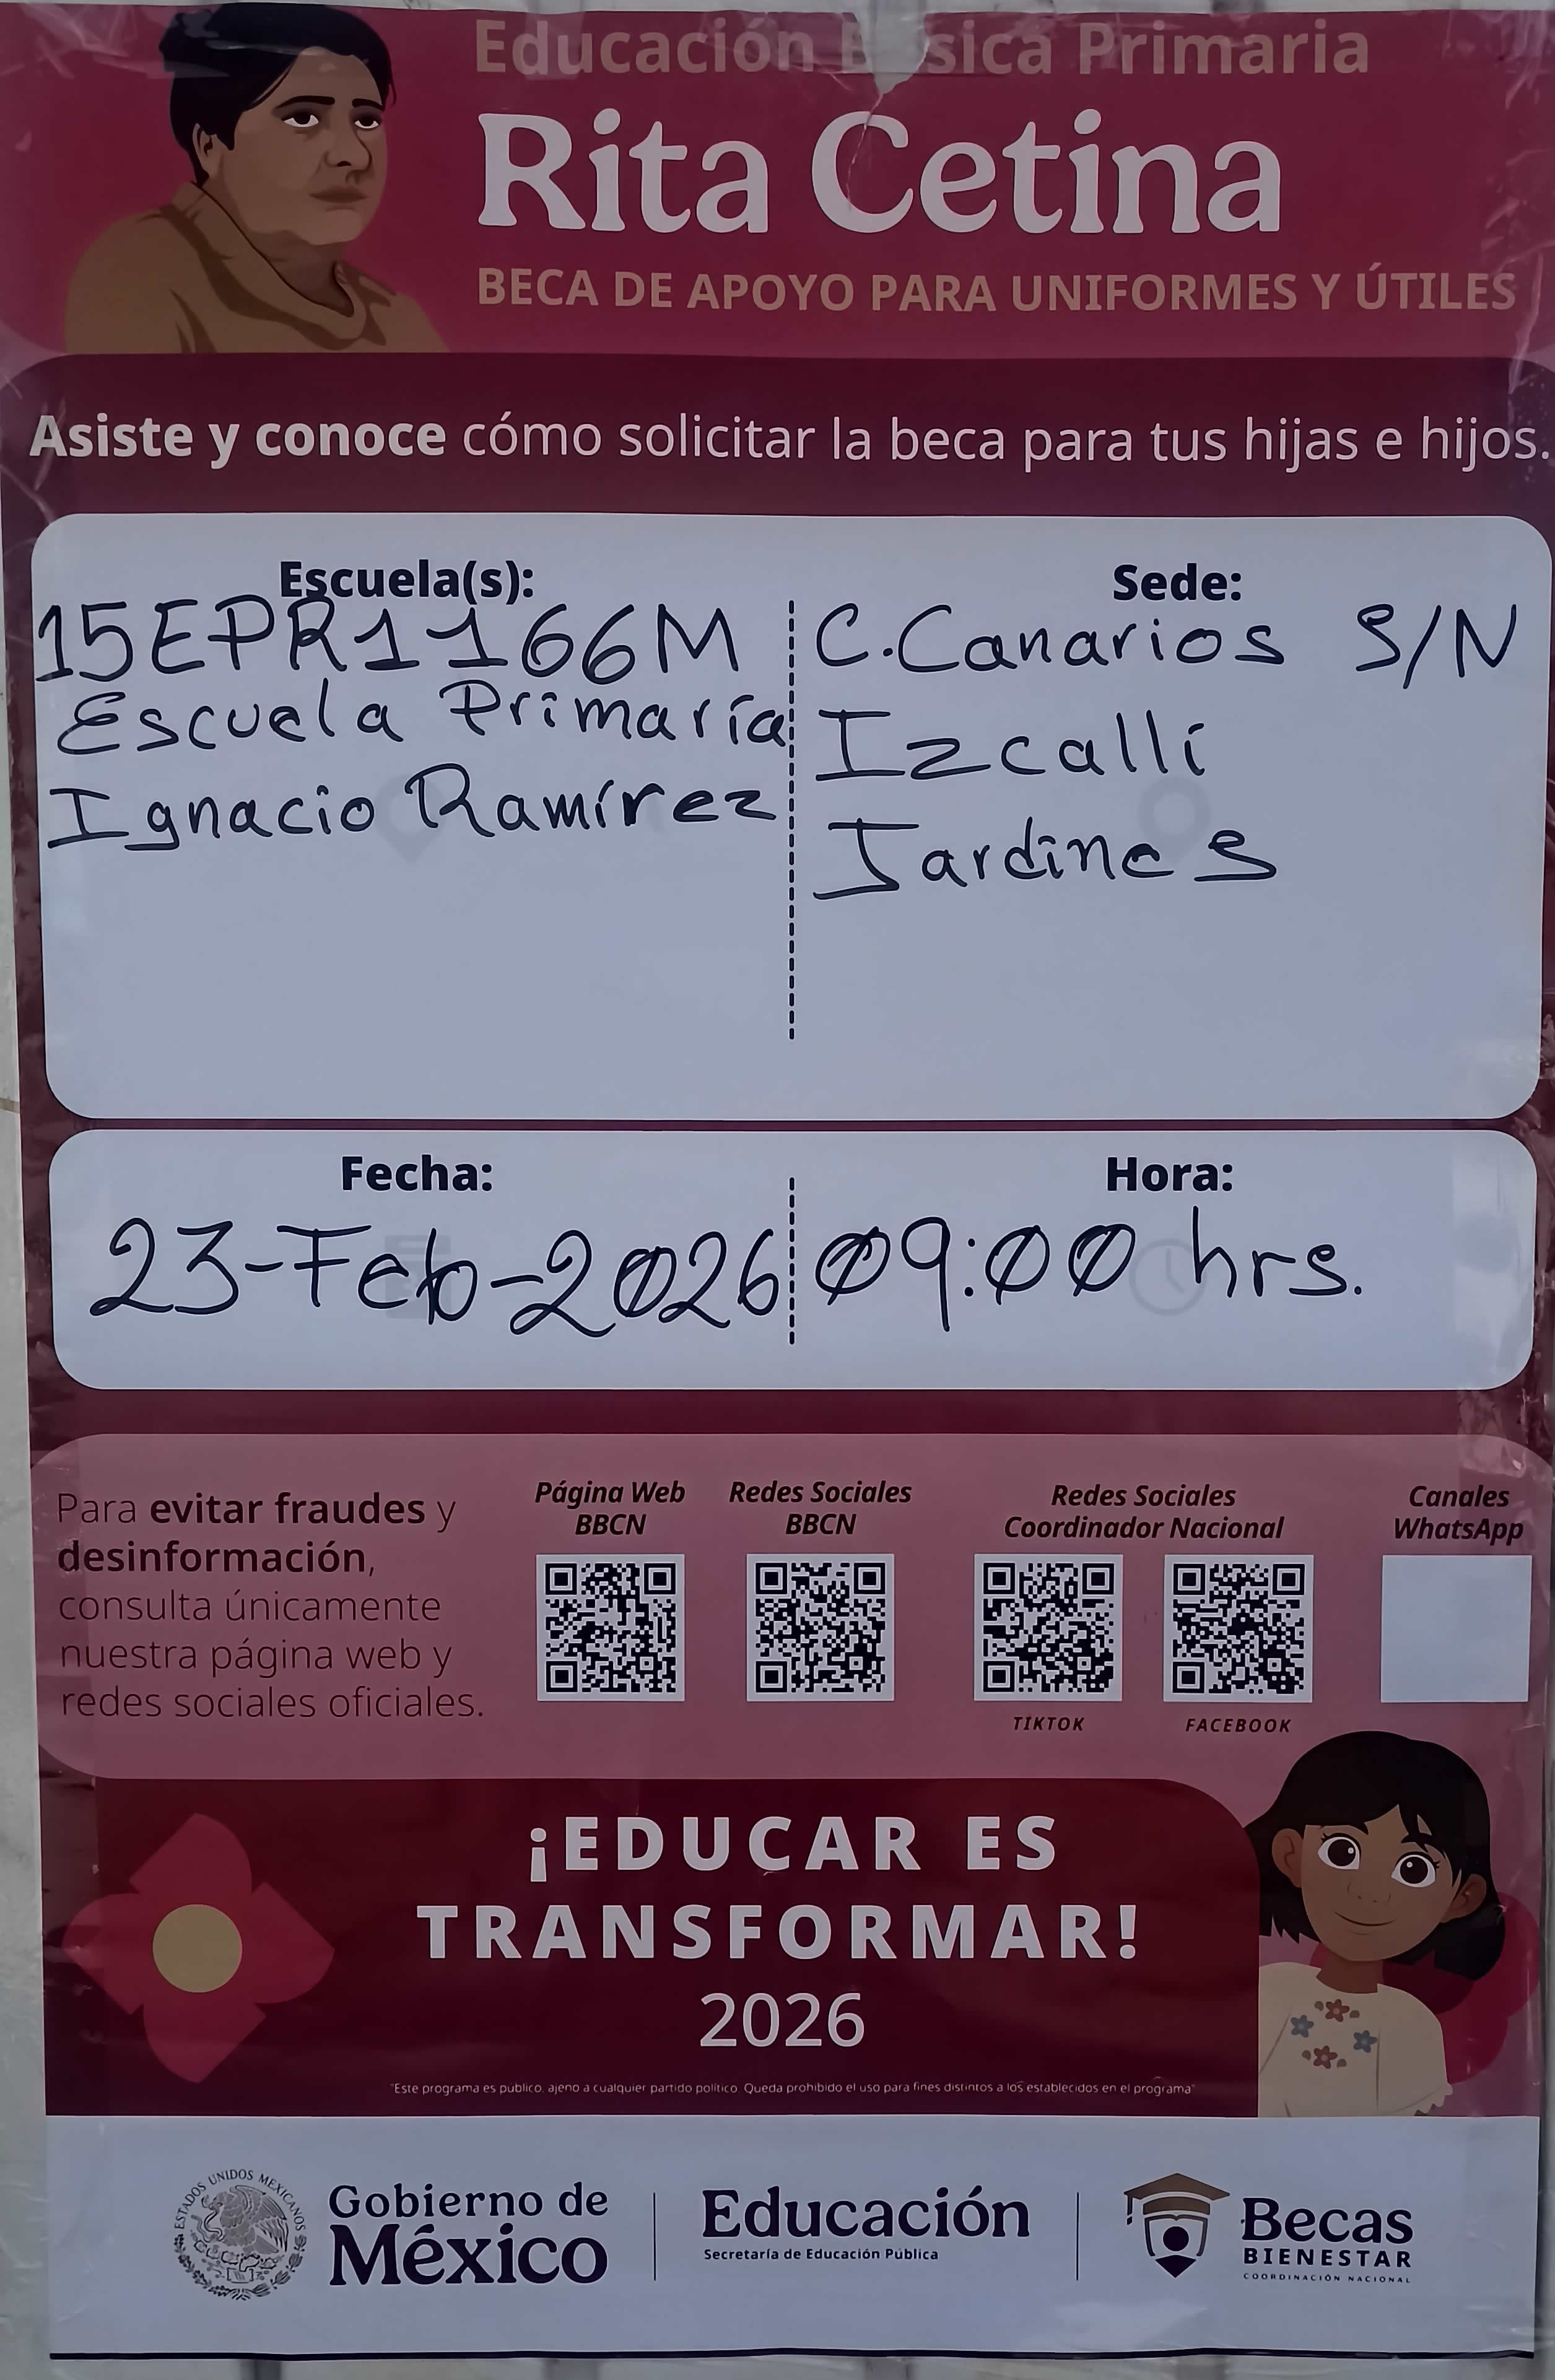 Educación Básica Primaria
Rita Cetina
BECA DE APOYO PARA UNIFORMES Y ÚTILES
Asiste y conoce cómo solicitar la beca para tus hijas e hijos.
Escuela(s):
15EPR1166M
Escuela Primaria
Ignacio Ramírez
Sede:
C.Canarios S/N
Izcalli
Jardines
Fecha:
23-Feb-2026
Hora:
09:00 hrs.
Para evitar fraudes y
desinformación,
consulta únicamente
nuestra página web y
redes sociales oficiales.
Página Web
BBCN
Redes Sociales
BBCN
Redes Sociales
Coordinador Nacional
TIKTOK
FACEBOOK
Canales
WhatsApp
¡EDUCAR ES
TRANSFORMAR!
2026
"Este programa es público, ajeno a cualquier partido político. Queda prohibido el uso para fines distintos a los establecidos en el programa"
ESTADOS UNIDOS MEXICANOS
Gobierno de
México
Educación
Secretaría de Educación Pública
Becas
BIENESTAR
COORDINACIÓN NACIONAL